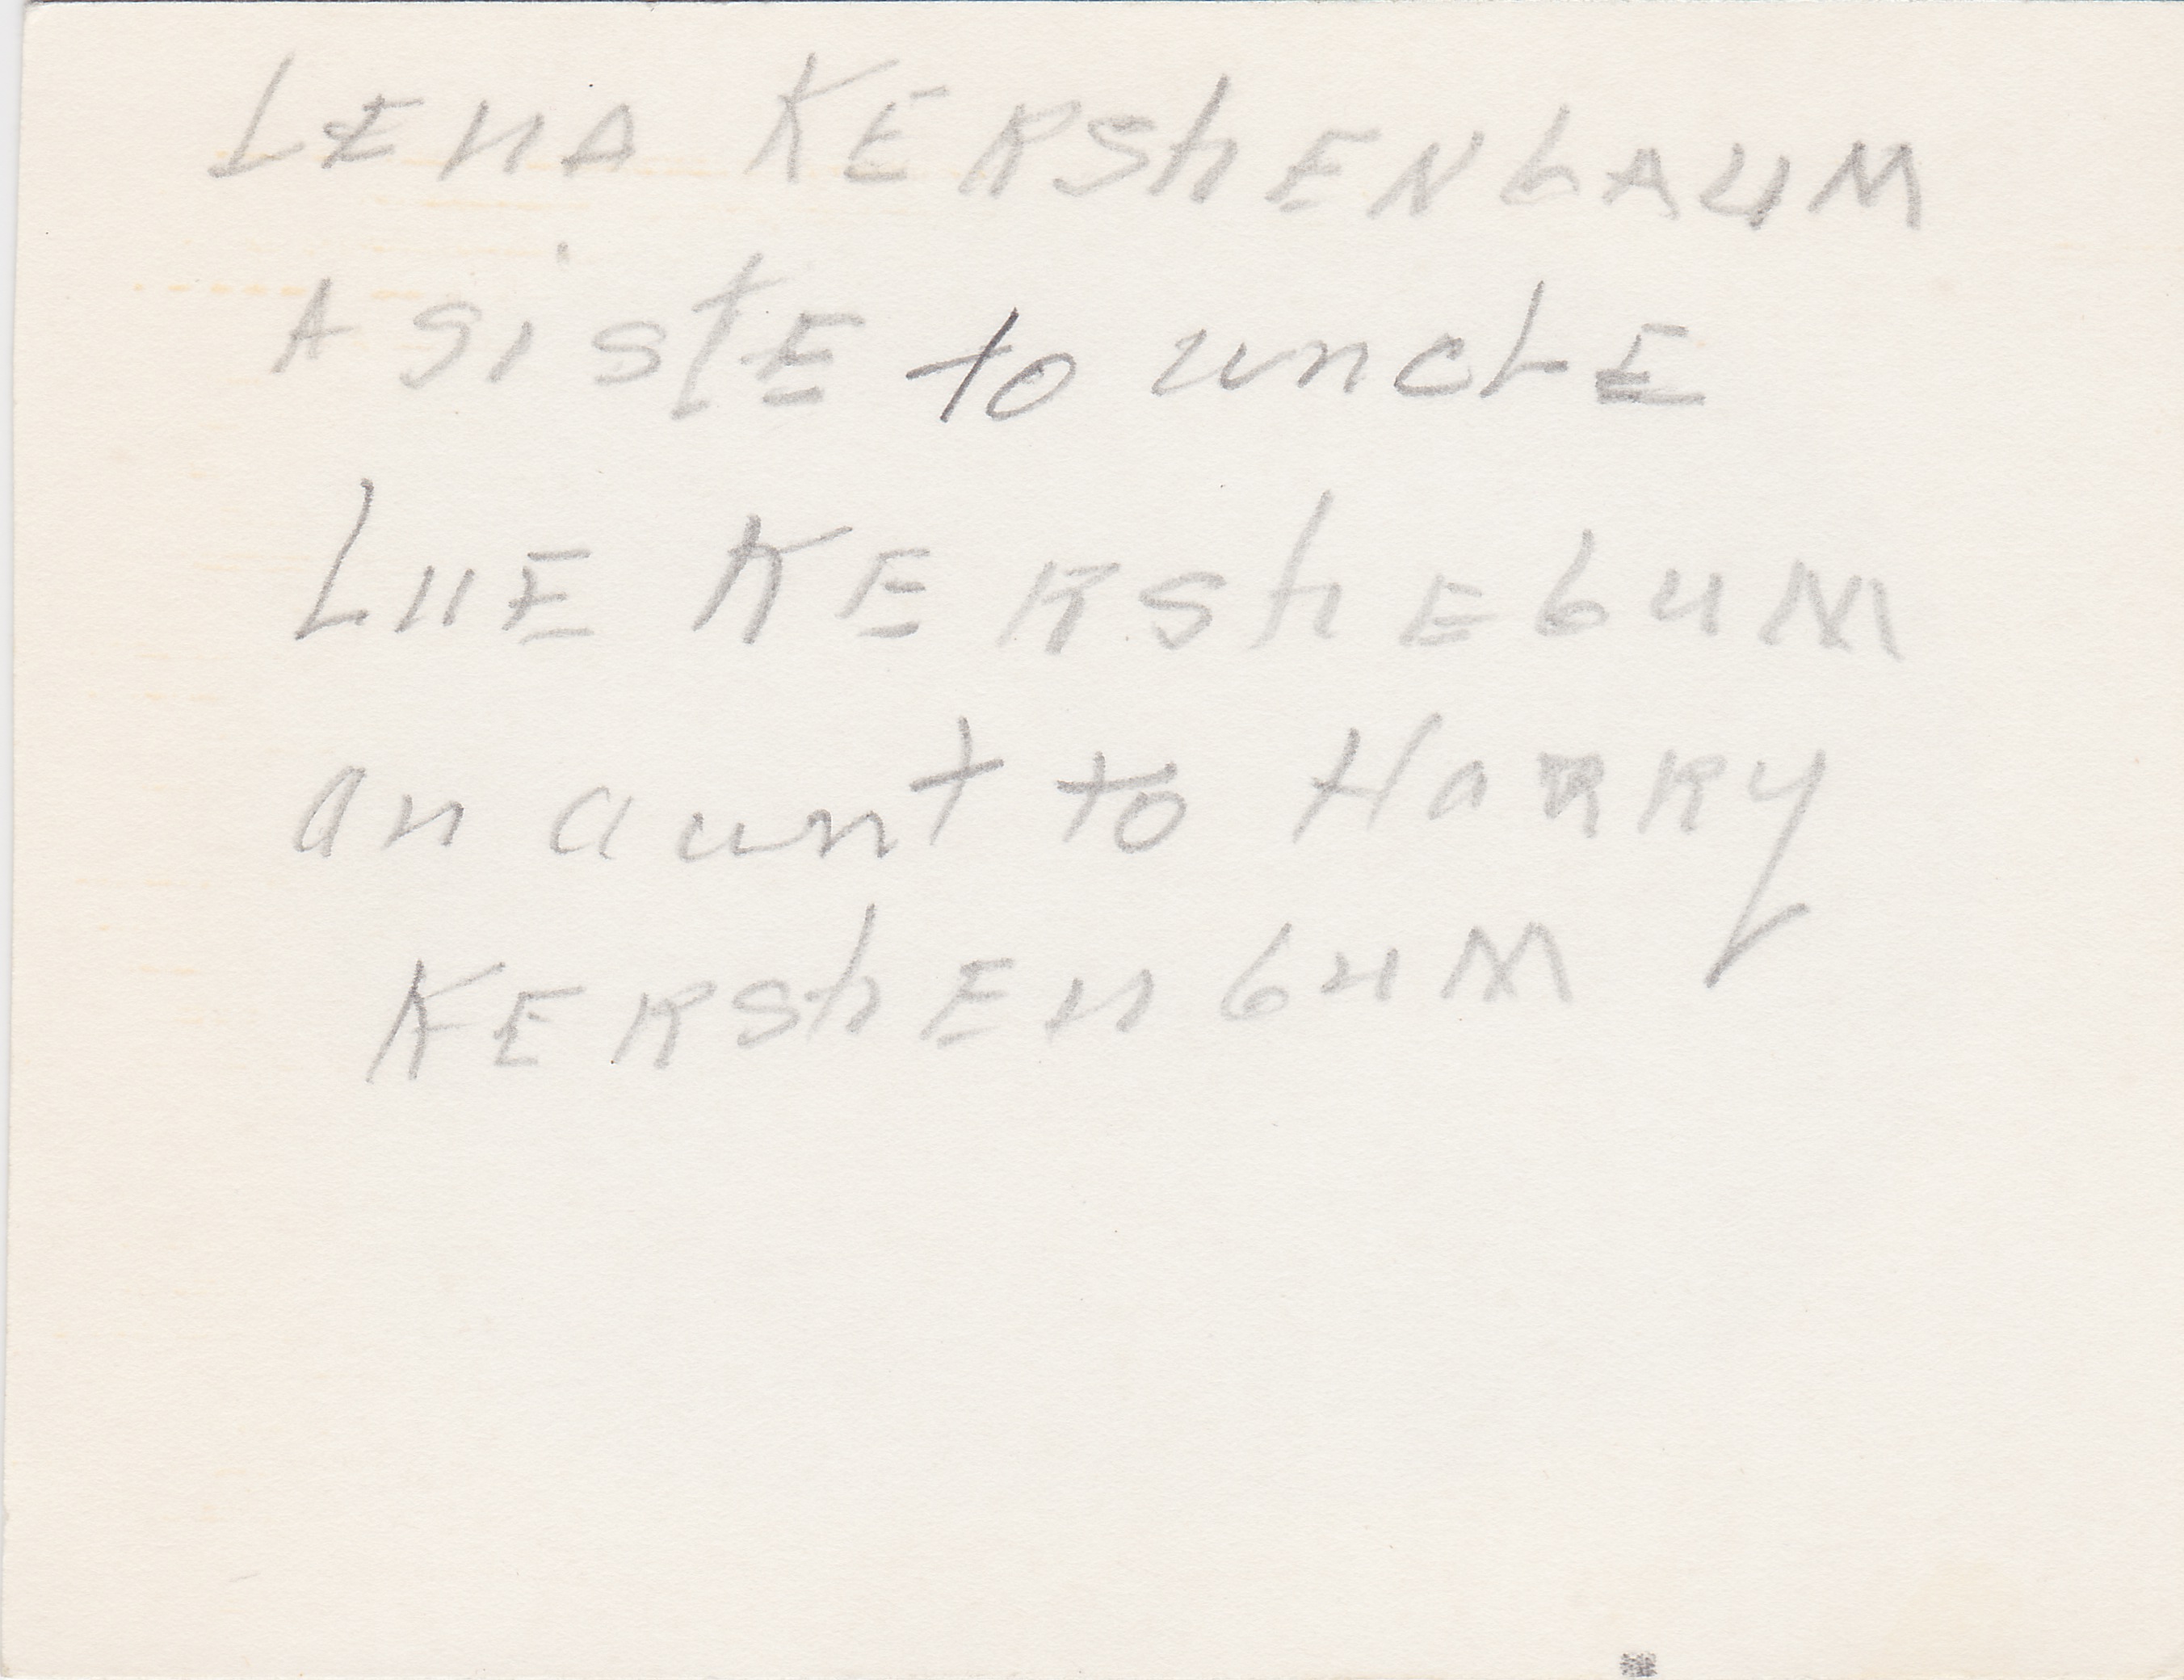 LENA KERShENbAUM
A SistE to unclE
LUE KERShEbUM
an aunt to HaRRy
KERShEnbUM